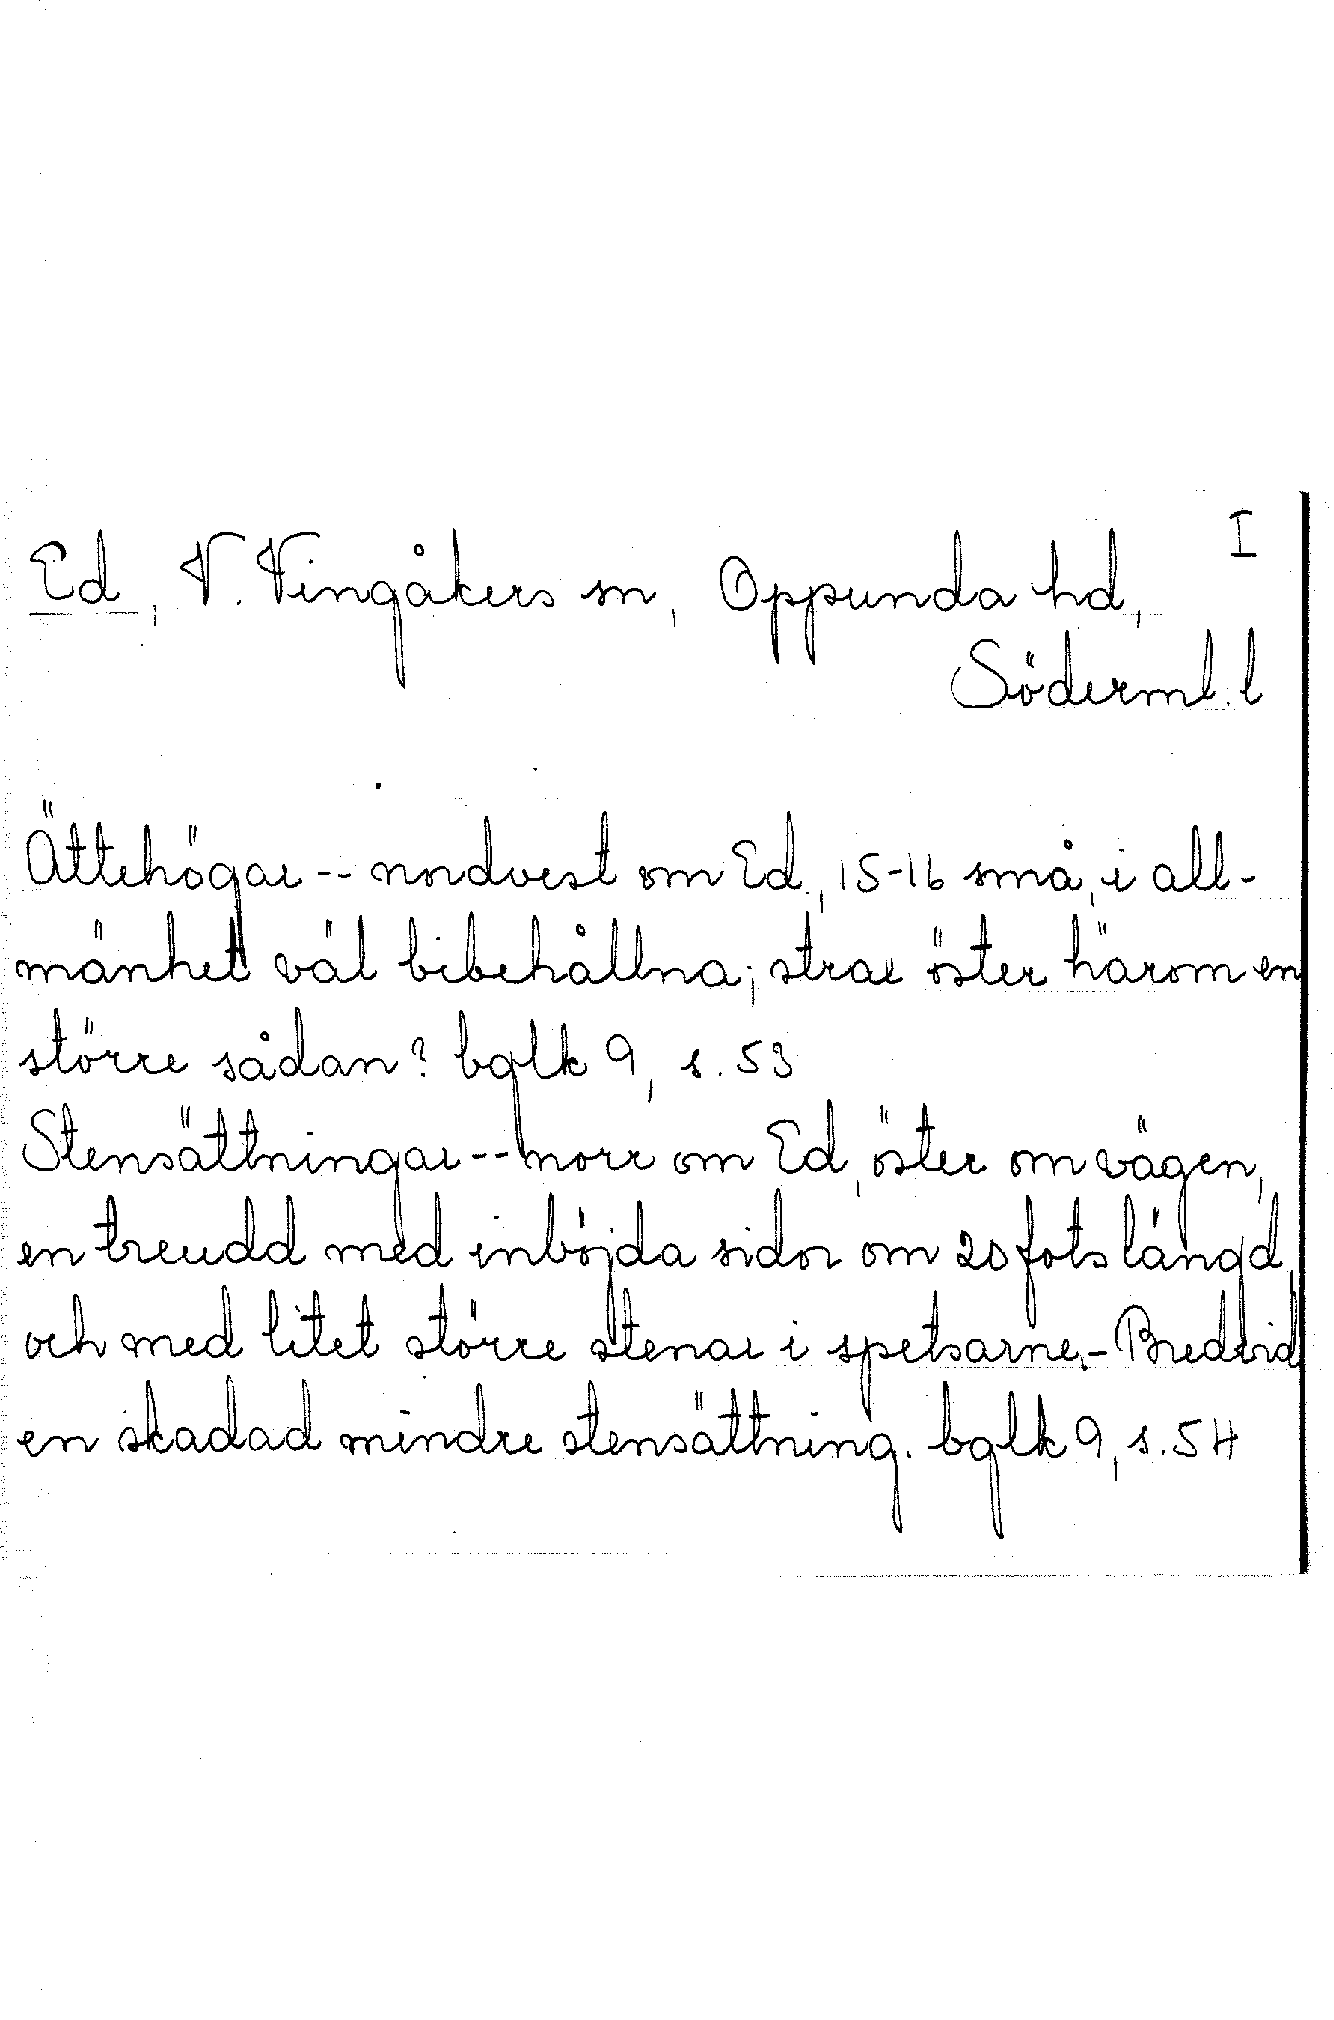 I
Ed, V. Vingåkers sn, Oppunda hd,
Söderml. l
Ättehögar -- nordvest om Ed, 15-16 små, i all-
mänhet väl bibehållna; strax öster härom en
större sådan? bglk 9, s. 53
Stensättningar -- norr om Ed, öster om vägen,
en treudd med inböjda sidor om 20 fots längd,
och med litet större stenar i spetsarne. - Bredvid
en skadad mindre stensättning. bglk 9, s. 54